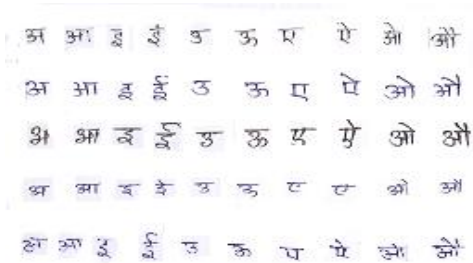 अ आ इ ई उ ऊ ए ऐ ओ औ
अ आ इ ई उ ऊ ए ऐ ओ औ
अ आ इ ई उ ऊ ए ऐ ओ औ
अ आ इ ई उ ऊ ए ऐ ओ औ
अ आ इ ई उ ऊ ए ऐ ओ औ